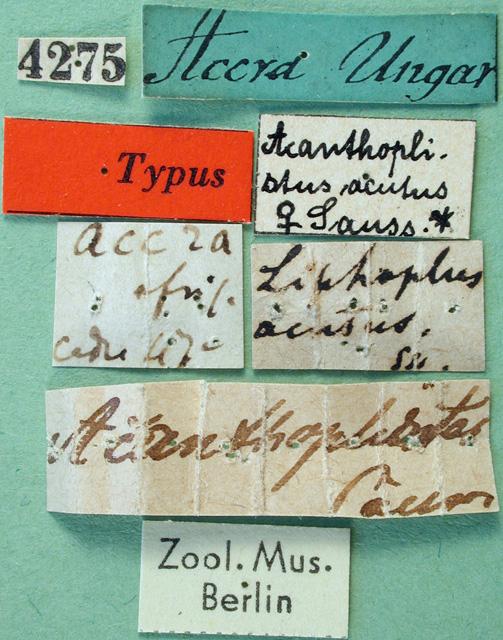 4275
Accra Ungar
Typus
Acanthopli-
stus acutus
♀ Sauss.*
accra
afri.
Liphoplus
acutus.
Acanthoplistus
Sauss
Zool. Mus.
Berlin